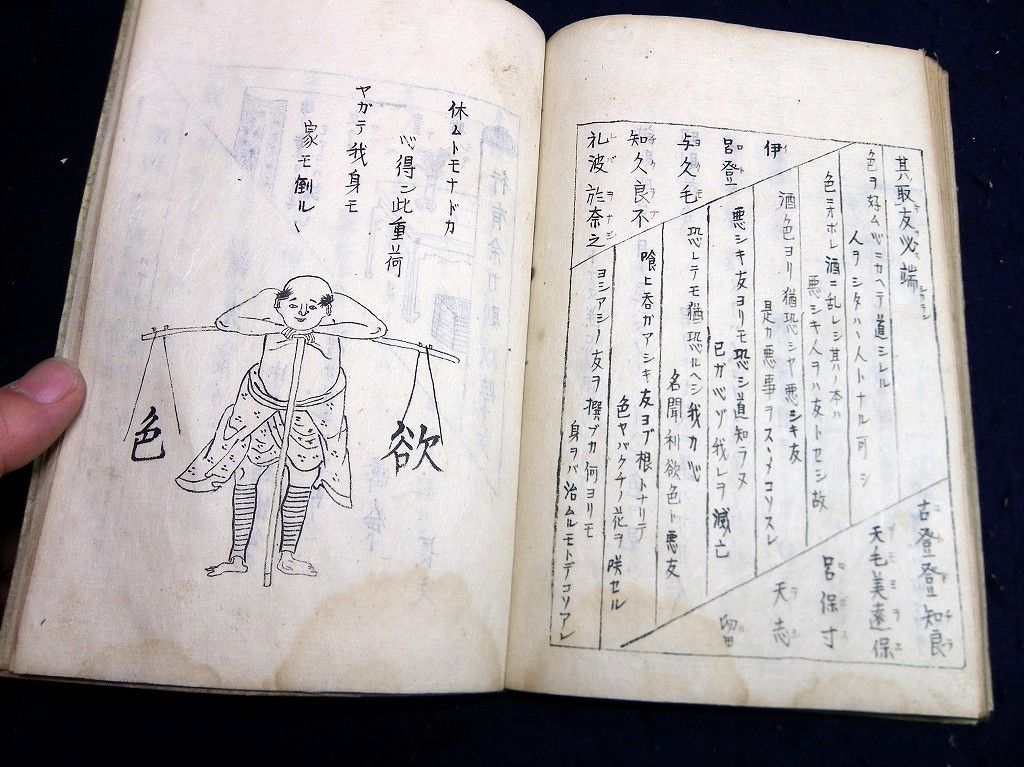 其取友必端
色ヲ好ム心ニカヘテ道シレル
人ヲシタハヽ人トナル可シ
色ニヲボレ酒ニ乱レシ其ノ本ハ
悪シキ人ヲハ友トセシ故
酒色ヨリ猶恐シヤ悪シキ友
是カ悪事ヲスヽメコソスレ
悪シキ友ヨリモ恐シ道知ラヌ
己ガ心ゾ我レヲ滅亡
恐レテモ猶恐ルヘシ我カ心
名聞利欲色ト悪友
喰ヒ呑ガアシキ友ヨブ根トナリテ
色ヤバクチノ花ヲ咲セル
ヨシアシノ友ヲ撰ブカ何ヨリモ
身ヲバ治ムルモトデコソアレ
伊
呂登
与久毛
知久良不
礼波於奈之
古登登知良
天毛美遠保
呂保寸
天志
留
休ムトモナドカ
心得ン此重荷
ヤガテ我身モ
家モ倒ルヽ
欲
色